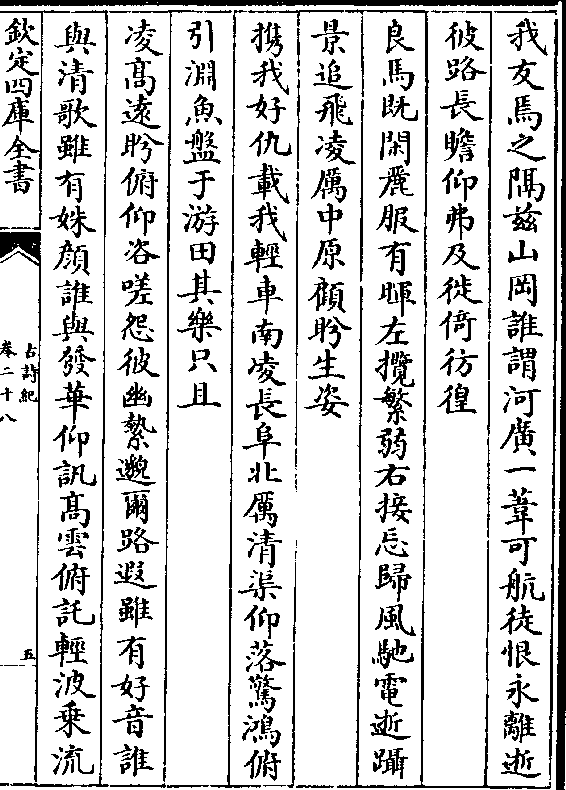 我友焉之隔兹山岡誰謂河廣一葦可航徒恨永離逝
彼路長瞻仰弗及徙倚彷徨
良馬既閑麗服有暉左攬繁弱右接忘歸風馳電逝躡
景追飛凌厲中原顧盻生姿
携我好仇載我輕車南凌長阜北厲清渠仰落驚鴻俯
引淵魚盤于游田其樂只且
凌髙遠盻俯仰咨嗟怨彼幽縶邈爾路遐雖有好音誰
與清歌雖有姝顔誰與發華仰訊髙雲俯託輕波乗流
欽定四庫全書
古詩紀
卷二十八
五